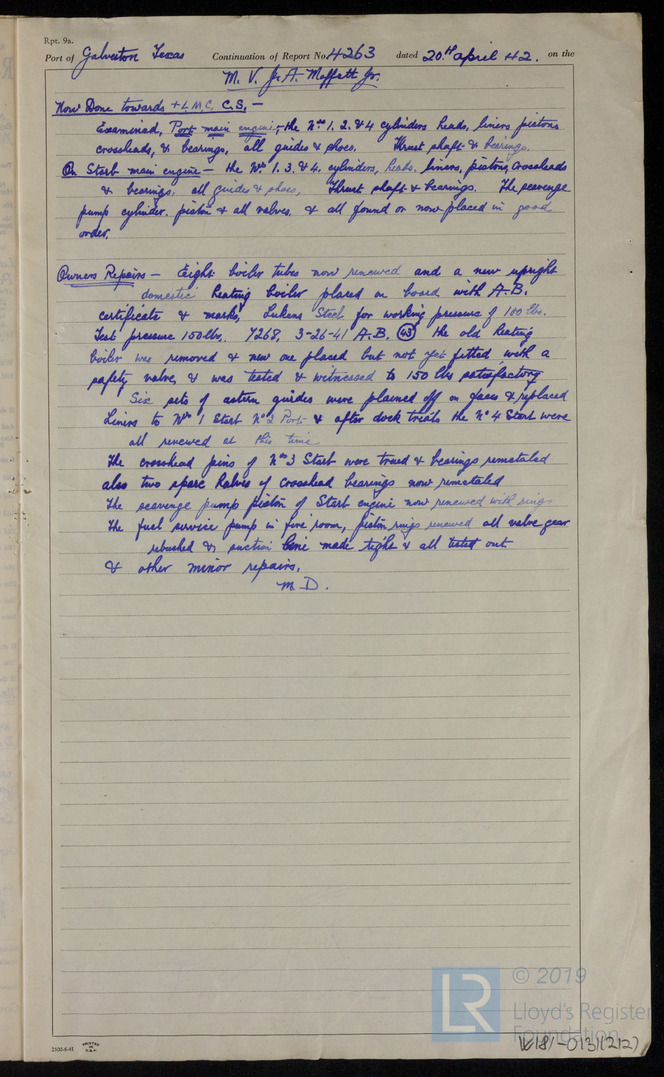 Rpt. 9a.
Port of Galveston Texas Continuation of Report No. 4263 dated 20th April 42. on the
M. V. J. A. Moffett Jr.
Now Done towards + L.M.C. C.S. —
Examined, Port main engine, the Nos 1, 2, & 4 cylinders heads, liners pistons
crossheads, & bearings, all guides & shoes. Thrust shaft & bearings.
On Starb main engine — the Nos 1. 3. & 4. cylinders, heads. liners, pistons, crossheads
& bearings. all guides & shoes, Thrust shaft & bearings. The scavenge
pump cylinder. piston & all valves. & all found or now placed in good
order.
Owners Repairs — Eight boiler tubes now renewed and a new upright
domestic heating boiler placed on board with A.B.
certificate & marks, Lukens Steel for working pressure of 100 lbs.
Test pressure 150 lbs. Y268, 3-26-41 A.B. 43 the old heating
boiler was removed & new one placed but not yet fitted with a
safety valve, & was tested & witnessed to 150 lbs satisfactory
Six sets of astern guides were planed off on faces & replaced
Liners to No 1 Starb No 2 Port & after dock trials the No 4 Starb were
all renewed at this time
The crosshead pins of No 3 Starb were trued & bearings remetaled
also two spare halves of crosshead bearings now remetaled
The scavenge pump piston of Starb engine now renewed with rings
The fuel service pump in fire room, piston rings renewed all valve gear
rebushed & suction line made tight & all tested out
& other minor repairs.
M. D.
2500-8-41 PRINTED IN U.S.A.
LR
© 2019
Lloyd's Register
Foundation
W181-0131(2/2)